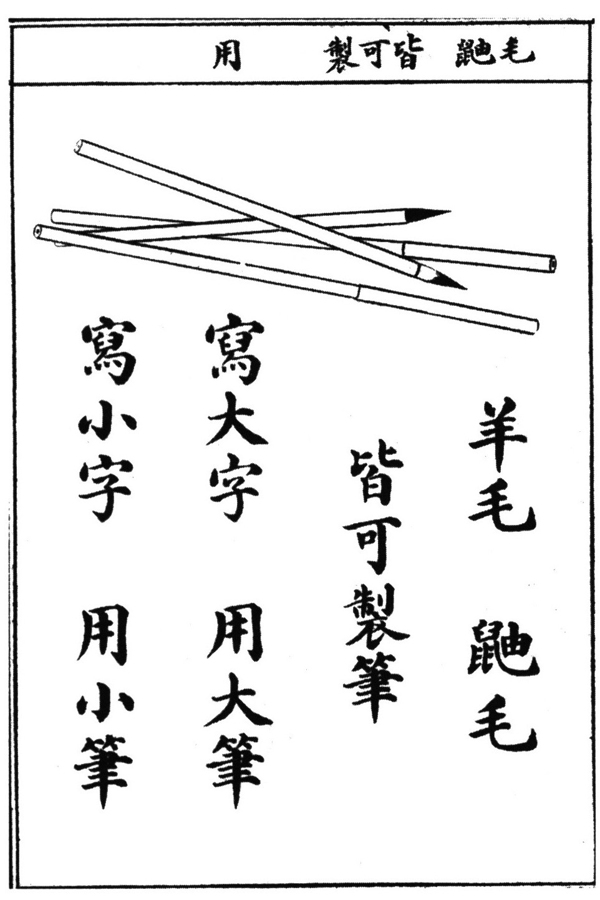 毛鼬 皆可製 用
羊毛 鼬毛
皆可製筆
寫大字 用大筆
寫小字 用小筆